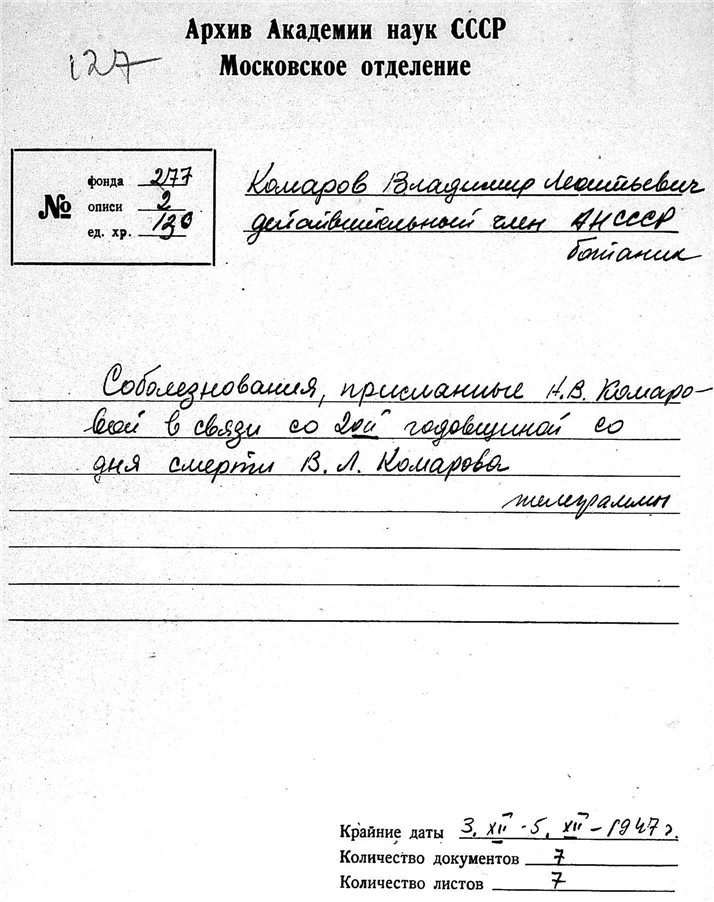 Архив Академии наук СССР
127
Московское отделение
№
фонда 277
описи 2
ед. хр. 130
Комаров Владимир Леонтьевич
действительный член АН СССР
ботаник
Соболезнования, присланные Н.В. Комаро-
вой в связи со 2ой годовщиной со
дня смерти В. Л. Комарова
телеграммы
Крайние даты 3. XII - 5. XII - 1947 г.
Количество документов 7
Количество листов 7